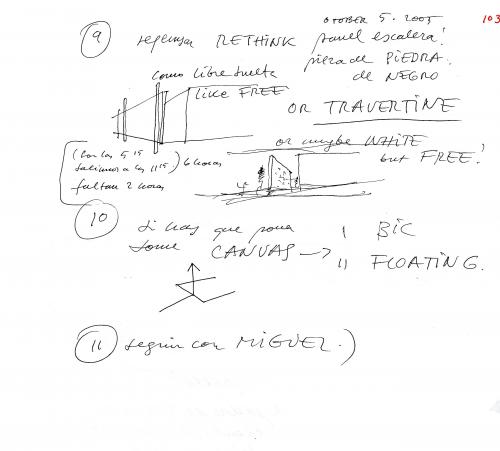 OTOBER 5. 2005
103
9 repensar RETHINK panel escalera!
pieza de PIEDRA.
como libre suelta de NEGRO
like FREE
OR TRAVERTINE
or maybe WHITE
but FREE!
(Son las 5 15
salimos a las 11 15) 6 horas
faltan 2 horas
10 Si hay que poner | BIC
some CANVAS → || FLOATING.
11 seguir con MIGUEL.)